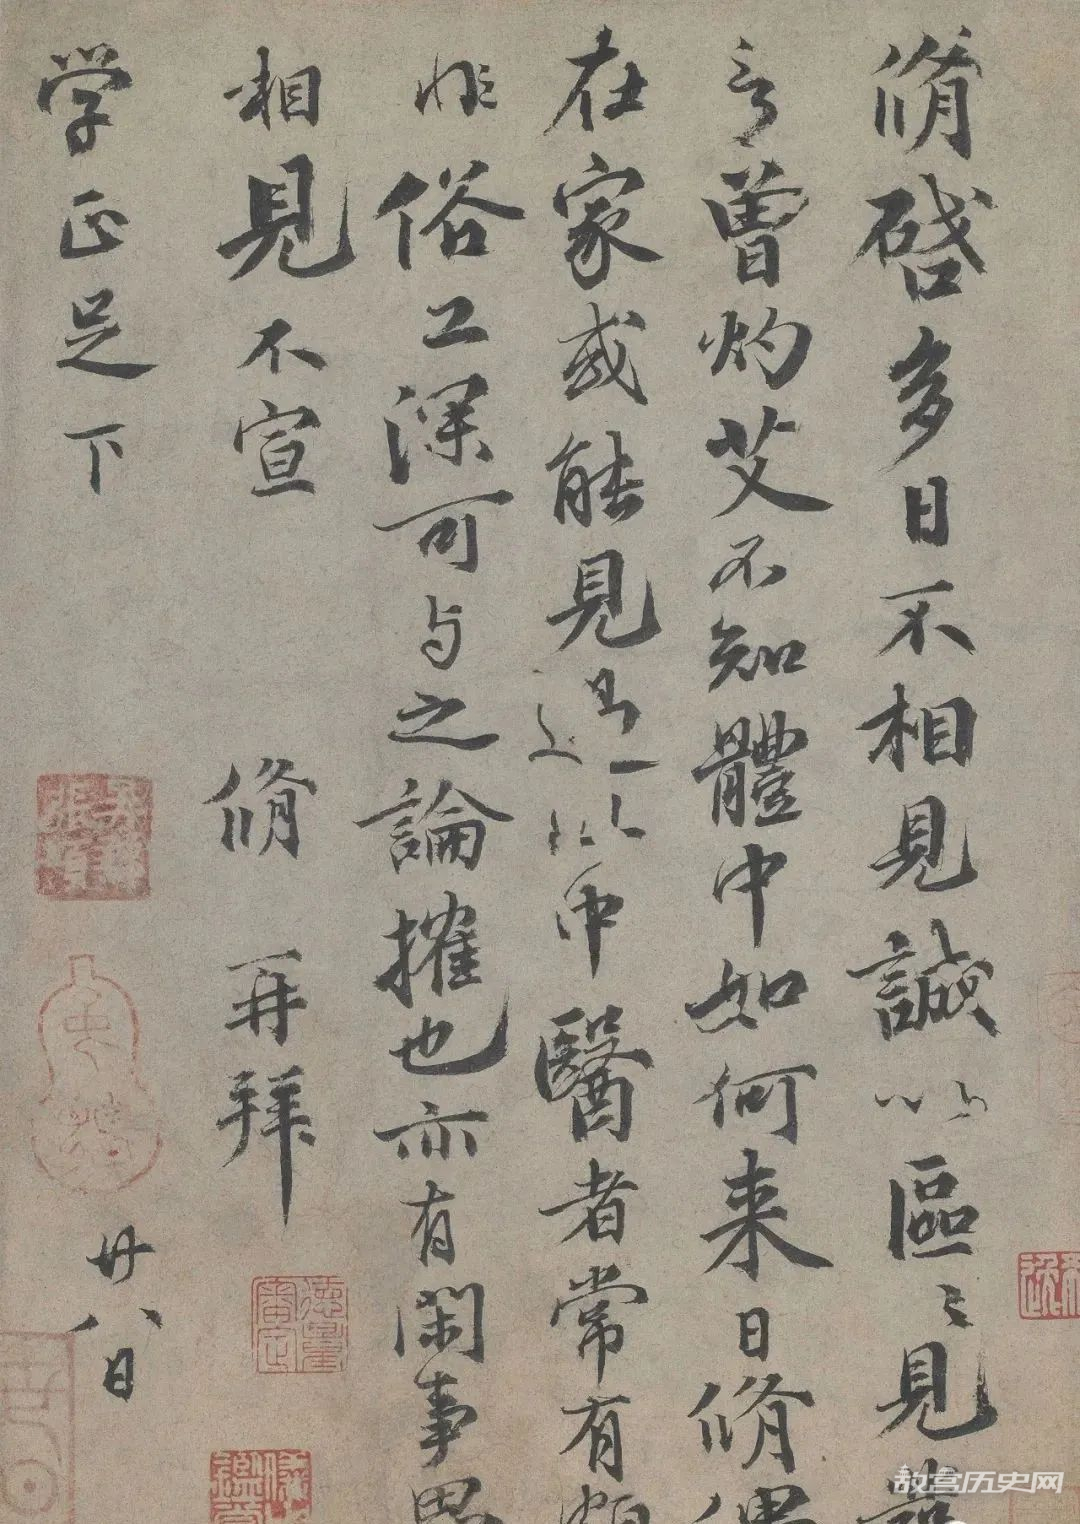 脩啓多日不相見誠以區〻見
言曾灼艾不知體中如何来日脩偶
在家或能見過此中醫者常有頗
非俗工深可与之論搉也亦有閑事思
相見不宣 脩再拜
学正足下 廿八日
故宫历史网